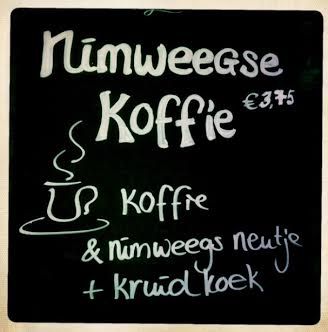 Nimweegse
Koffie €3,75
Koffie
& nimweegs neutje
+ kruidkoek